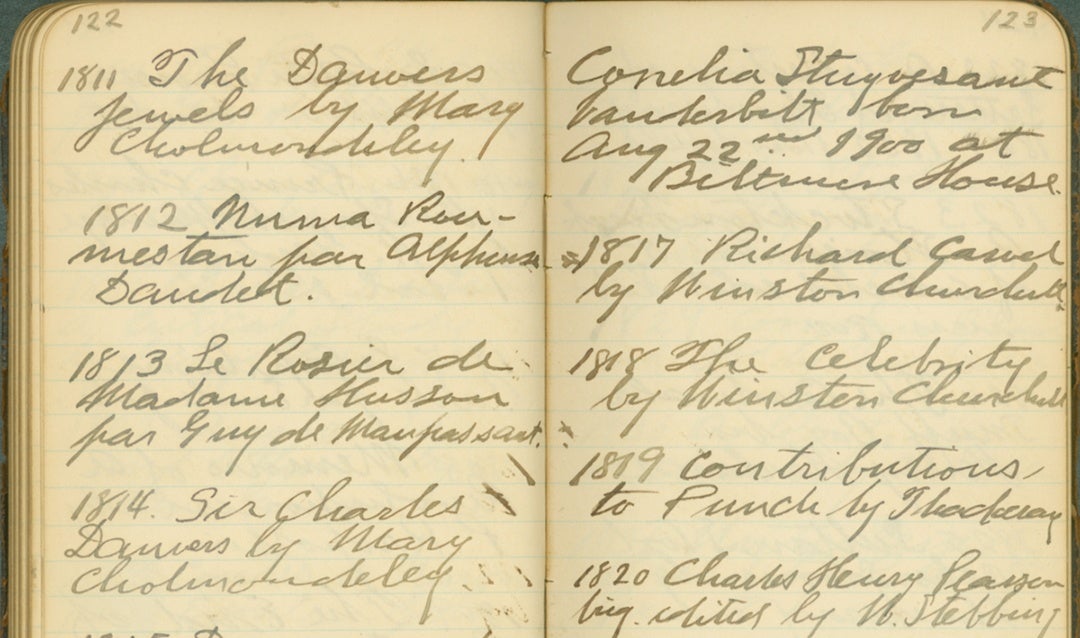 122
1811 The Danvers
Jewels by Mary
Cholmondeley.
1812 Numa Rou-
mestan par Alphonse
Daudet.
1813 Le Rosier de
Madame Husson
par Guy de Maupassant.
1814. Sir Charles
Danvers by Mary
Cholmondeley.
123
Cornelia Stuyvesant
Vanderbilt born
Aug 22nd 1900 at
Biltmore House.
1817 Richard Carvel
by Winston Churchill
1818 The Celebrity
by Winston Churchill
1819 Contributions
to Punch by Thackeray
1820 Charles Henry Pearson
edited by W. Stebbing